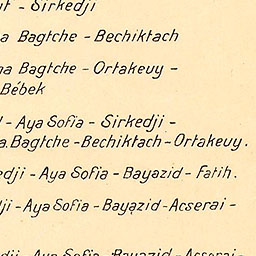 - Sirkedji
Bagtche - Bechiktach
Bagtche - Ortakeuy -
Bébek
- Aya Sofia - Sirkedji -
Bagtche - Bechiktach - Ortakeuy.
- Aya Sofia - Bayazid - Fatih.
- Aya Sofia - Bayazid - Acserai -